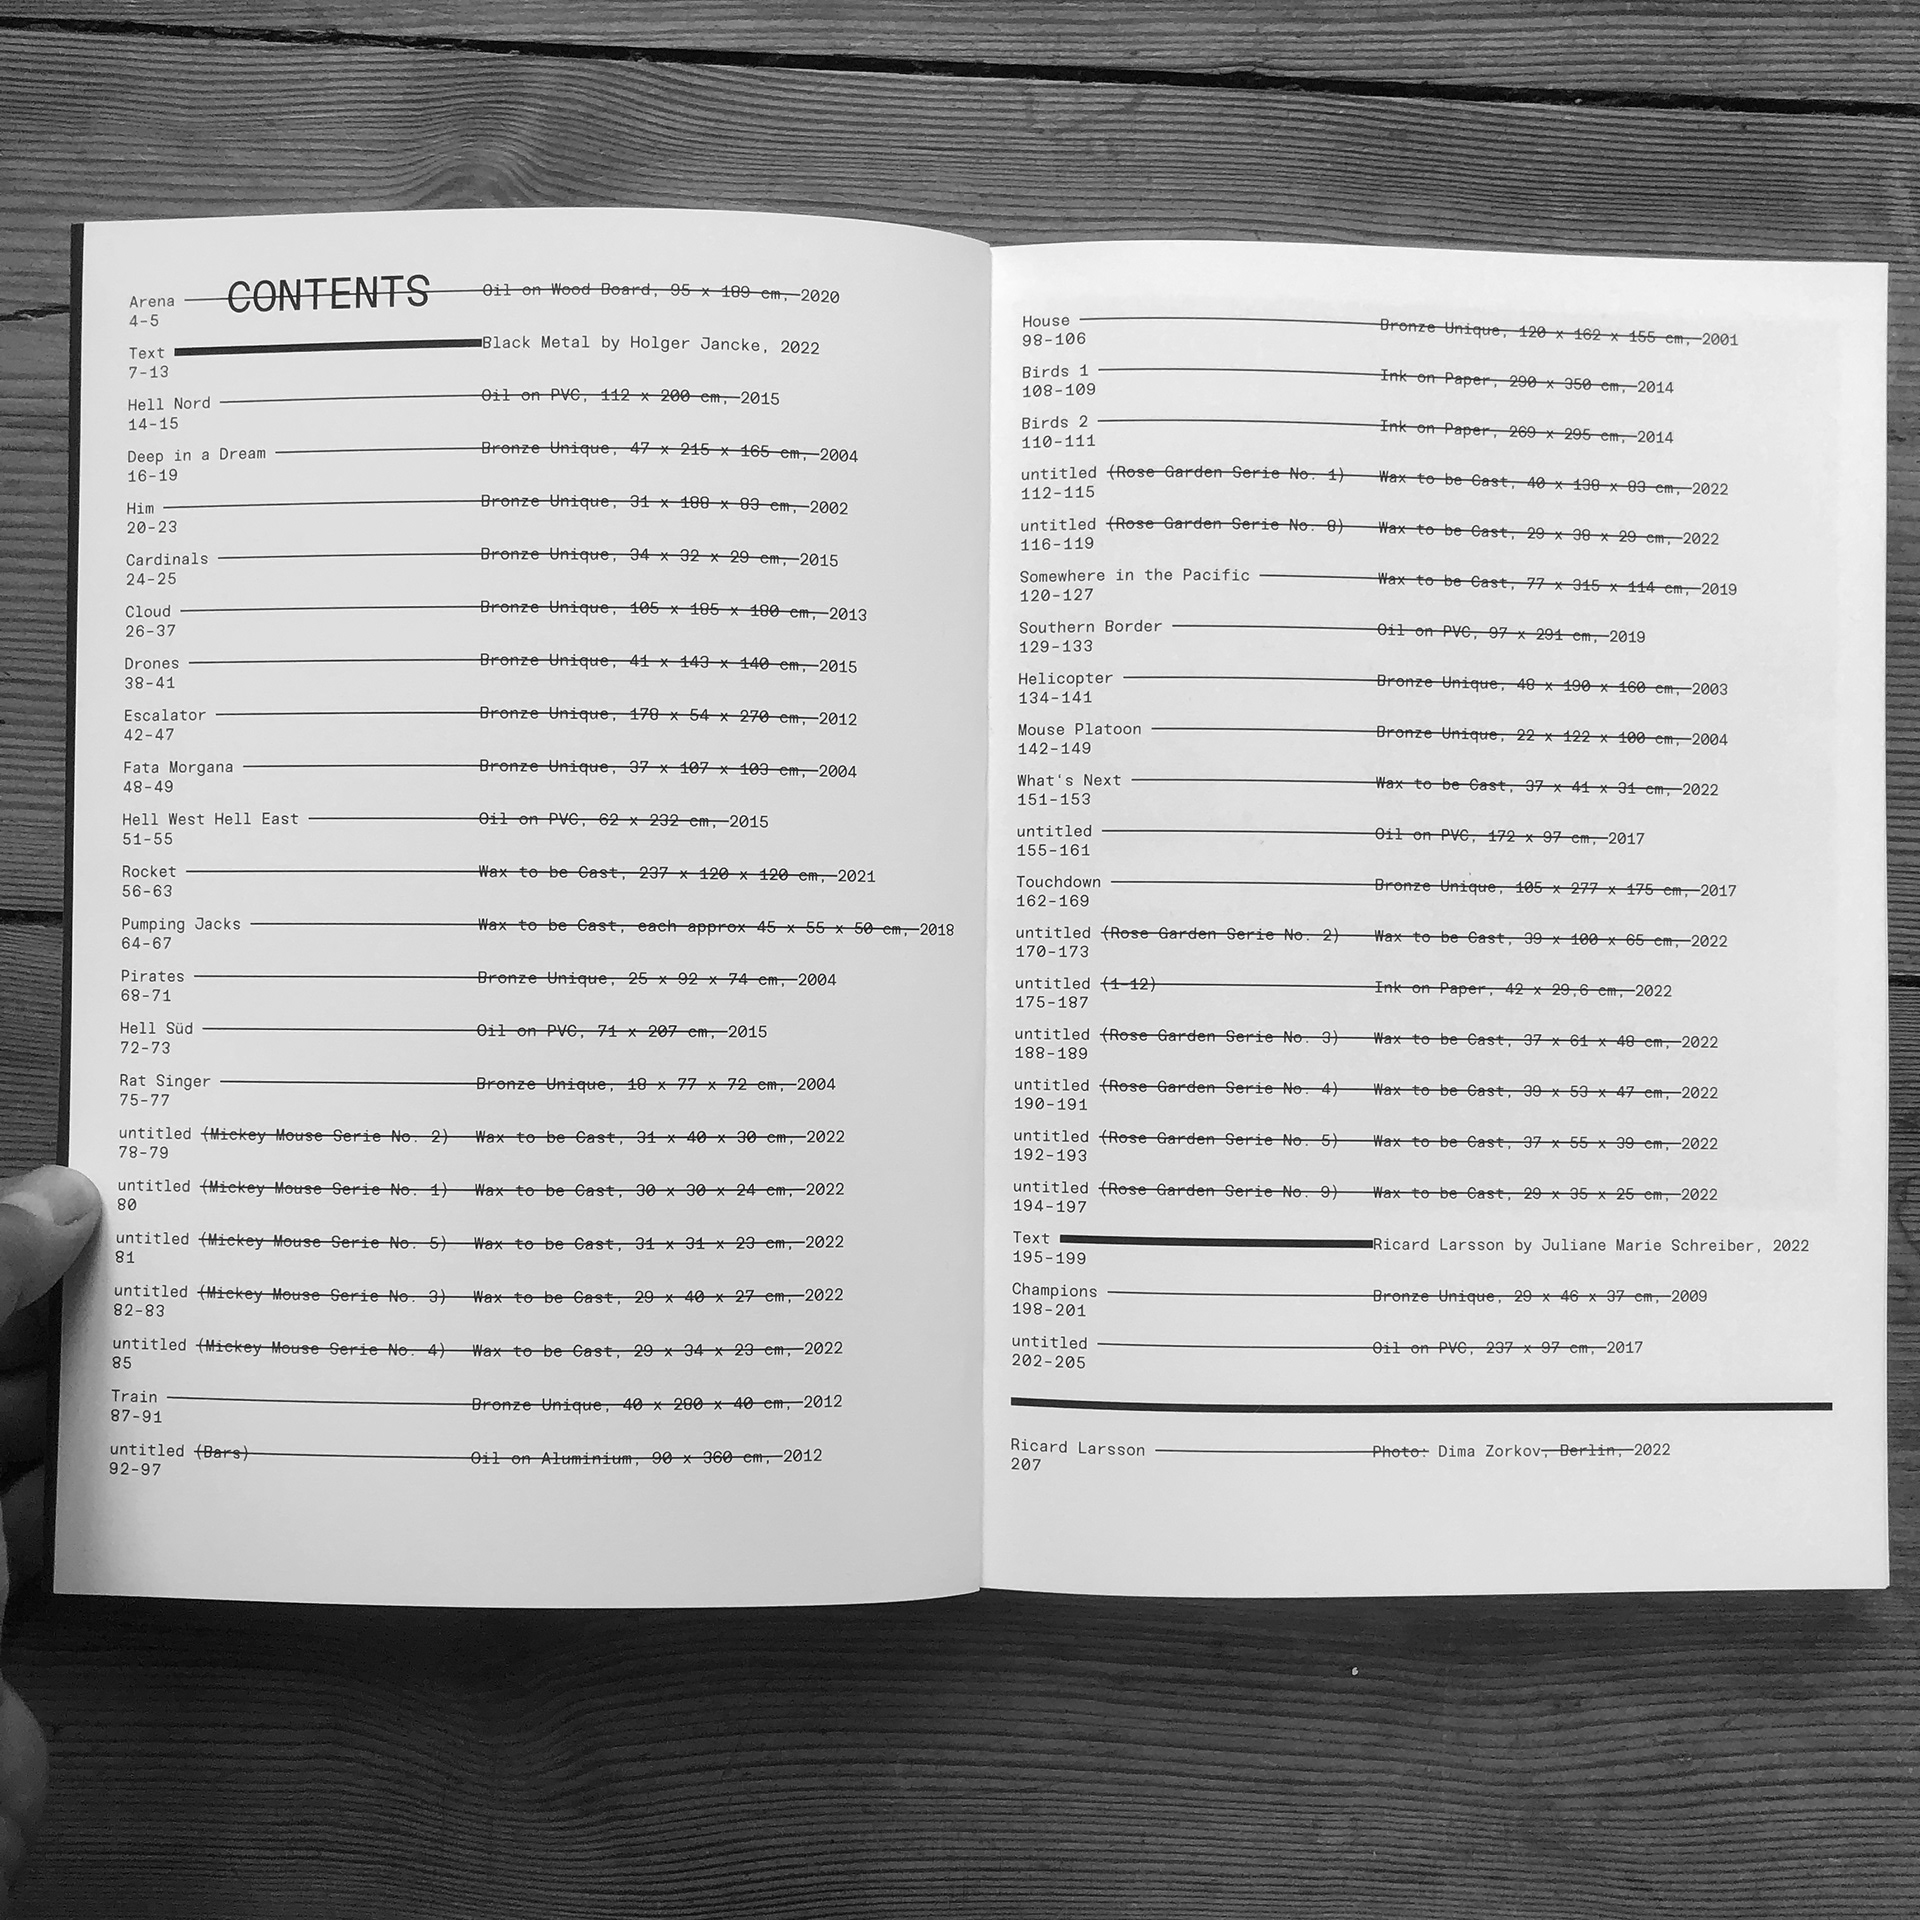 CONTENTS
Arena Oil on Wood Board, 95 x 189 cm, 2020
4-5
Text Black Metal by Holger Jancke, 2022
7-13
Hell Nord Oil on PVC, 112 x 200 cm, 2015
14-15
Deep in a Dream Bronze Unique, 47 x 215 x 165 cm, 2004
16-19
Him Bronze Unique, 31 x 188 x 83 cm, 2002
20-23
Cardinals Bronze Unique, 34 x 32 x 29 cm, 2015
24-25
Cloud Bronze Unique, 105 x 185 x 180 cm, 2013
26-37
Drones Bronze Unique, 41 x 143 x 140 cm, 2015
38-41
Escalator Bronze Unique, 178 x 54 x 270 cm, 2012
42-47
Fata Morgana Bronze Unique, 37 x 107 x 103 cm, 2004
48-49
Hell West Hell East Oil on PVC, 62 x 232 cm, 2015
51-55
Rocket Wax to be Cast, 237 x 120 x 120 cm, 2021
56-63
Pumping Jacks Wax to be Cast, each approx 45 x 55 x 50 cm, 2018
64-67
Pirates Bronze Unique, 25 x 92 x 74 cm, 2004
68-71
Hell Süd Oil on PVC, 71 x 207 cm, 2015
72-73
Rat Singer Bronze Unique, 18 x 77 x 72 cm, 2004
75-77
untitled (Mickey Mouse Serie No. 2) Wax to be Cast, 31 x 40 x 30 cm, 2022
78-79
untitled (Mickey Mouse Serie No. 1) Wax to be Cast, 30 x 30 x 24 cm, 2022
80
untitled (Mickey Mouse Serie No. 5) Wax to be Cast, 31 x 31 x 23 cm, 2022
81
untitled (Mickey Mouse Serie No. 3) Wax to be Cast, 29 x 40 x 27 cm, 2022
82-83
untitled (Mickey Mouse Serie No. 4) Wax to be Cast, 29 x 34 x 23 cm, 2022
85
Train Bronze Unique, 40 x 280 x 40 cm, 2012
87-91
untitled (Bars) Oil on Aluminium, 90 x 360 cm, 2012
92-97
House Bronze Unique, 120 x 162 x 155 cm, 2001
98-106
Birds 1 Ink on Paper, 290 x 350 cm, 2014
108-109
Birds 2 Ink on Paper, 269 x 295 cm, 2014
110-111
untitled (Rose Garden Serie No. 1) Wax to be Cast, 40 x 138 x 83 cm, 2022
112-115
untitled (Rose Garden Serie No. 8) Wax to be Cast, 29 x 38 x 29 cm, 2022
116-119
Somewhere in the Pacific Wax to be Cast, 77 x 315 x 114 cm, 2019
120-127
Southern Border Oil on PVC, 97 x 291 cm, 2019
129-133
Helicopter Bronze Unique, 48 x 190 x 160 cm, 2003
134-141
Mouse Platoon Bronze Unique, 22 x 122 x 100 cm, 2004
142-149
What's Next Wax to be Cast, 37 x 41 x 31 cm, 2022
151-153
untitled Oil on PVC, 172 x 97 cm, 2017
155-161
Touchdown Bronze Unique, 105 x 277 x 175 cm, 2017
162-169
untitled (Rose Garden Serie No. 2) Wax to be Cast, 39 x 100 x 65 cm, 2022
170-173
untitled (1-12) Ink on Paper, 42 x 29,6 cm, 2022
175-187
untitled (Rose Garden Serie No. 3) Wax to be Cast, 37 x 61 x 48 cm, 2022
188-189
untitled (Rose Garden Serie No. 4) Wax to be Cast, 39 x 53 x 47 cm, 2022
190-191
untitled (Rose Garden Serie No. 5) Wax to be Cast, 37 x 55 x 39 cm, 2022
192-193
untitled (Rose Garden Serie No. 9) Wax to be Cast, 29 x 35 x 25 cm, 2022
194-197
Text Ricard Larsson by Juliane Marie Schreiber, 2022
195-199
Champions Bronze Unique, 29 x 46 x 37 cm, 2009
198-201
untitled Oil on PVC, 237 x 97 cm, 2017
202-205
Ricard Larsson Photo: Dima Zorkov, Berlin, 2022
207